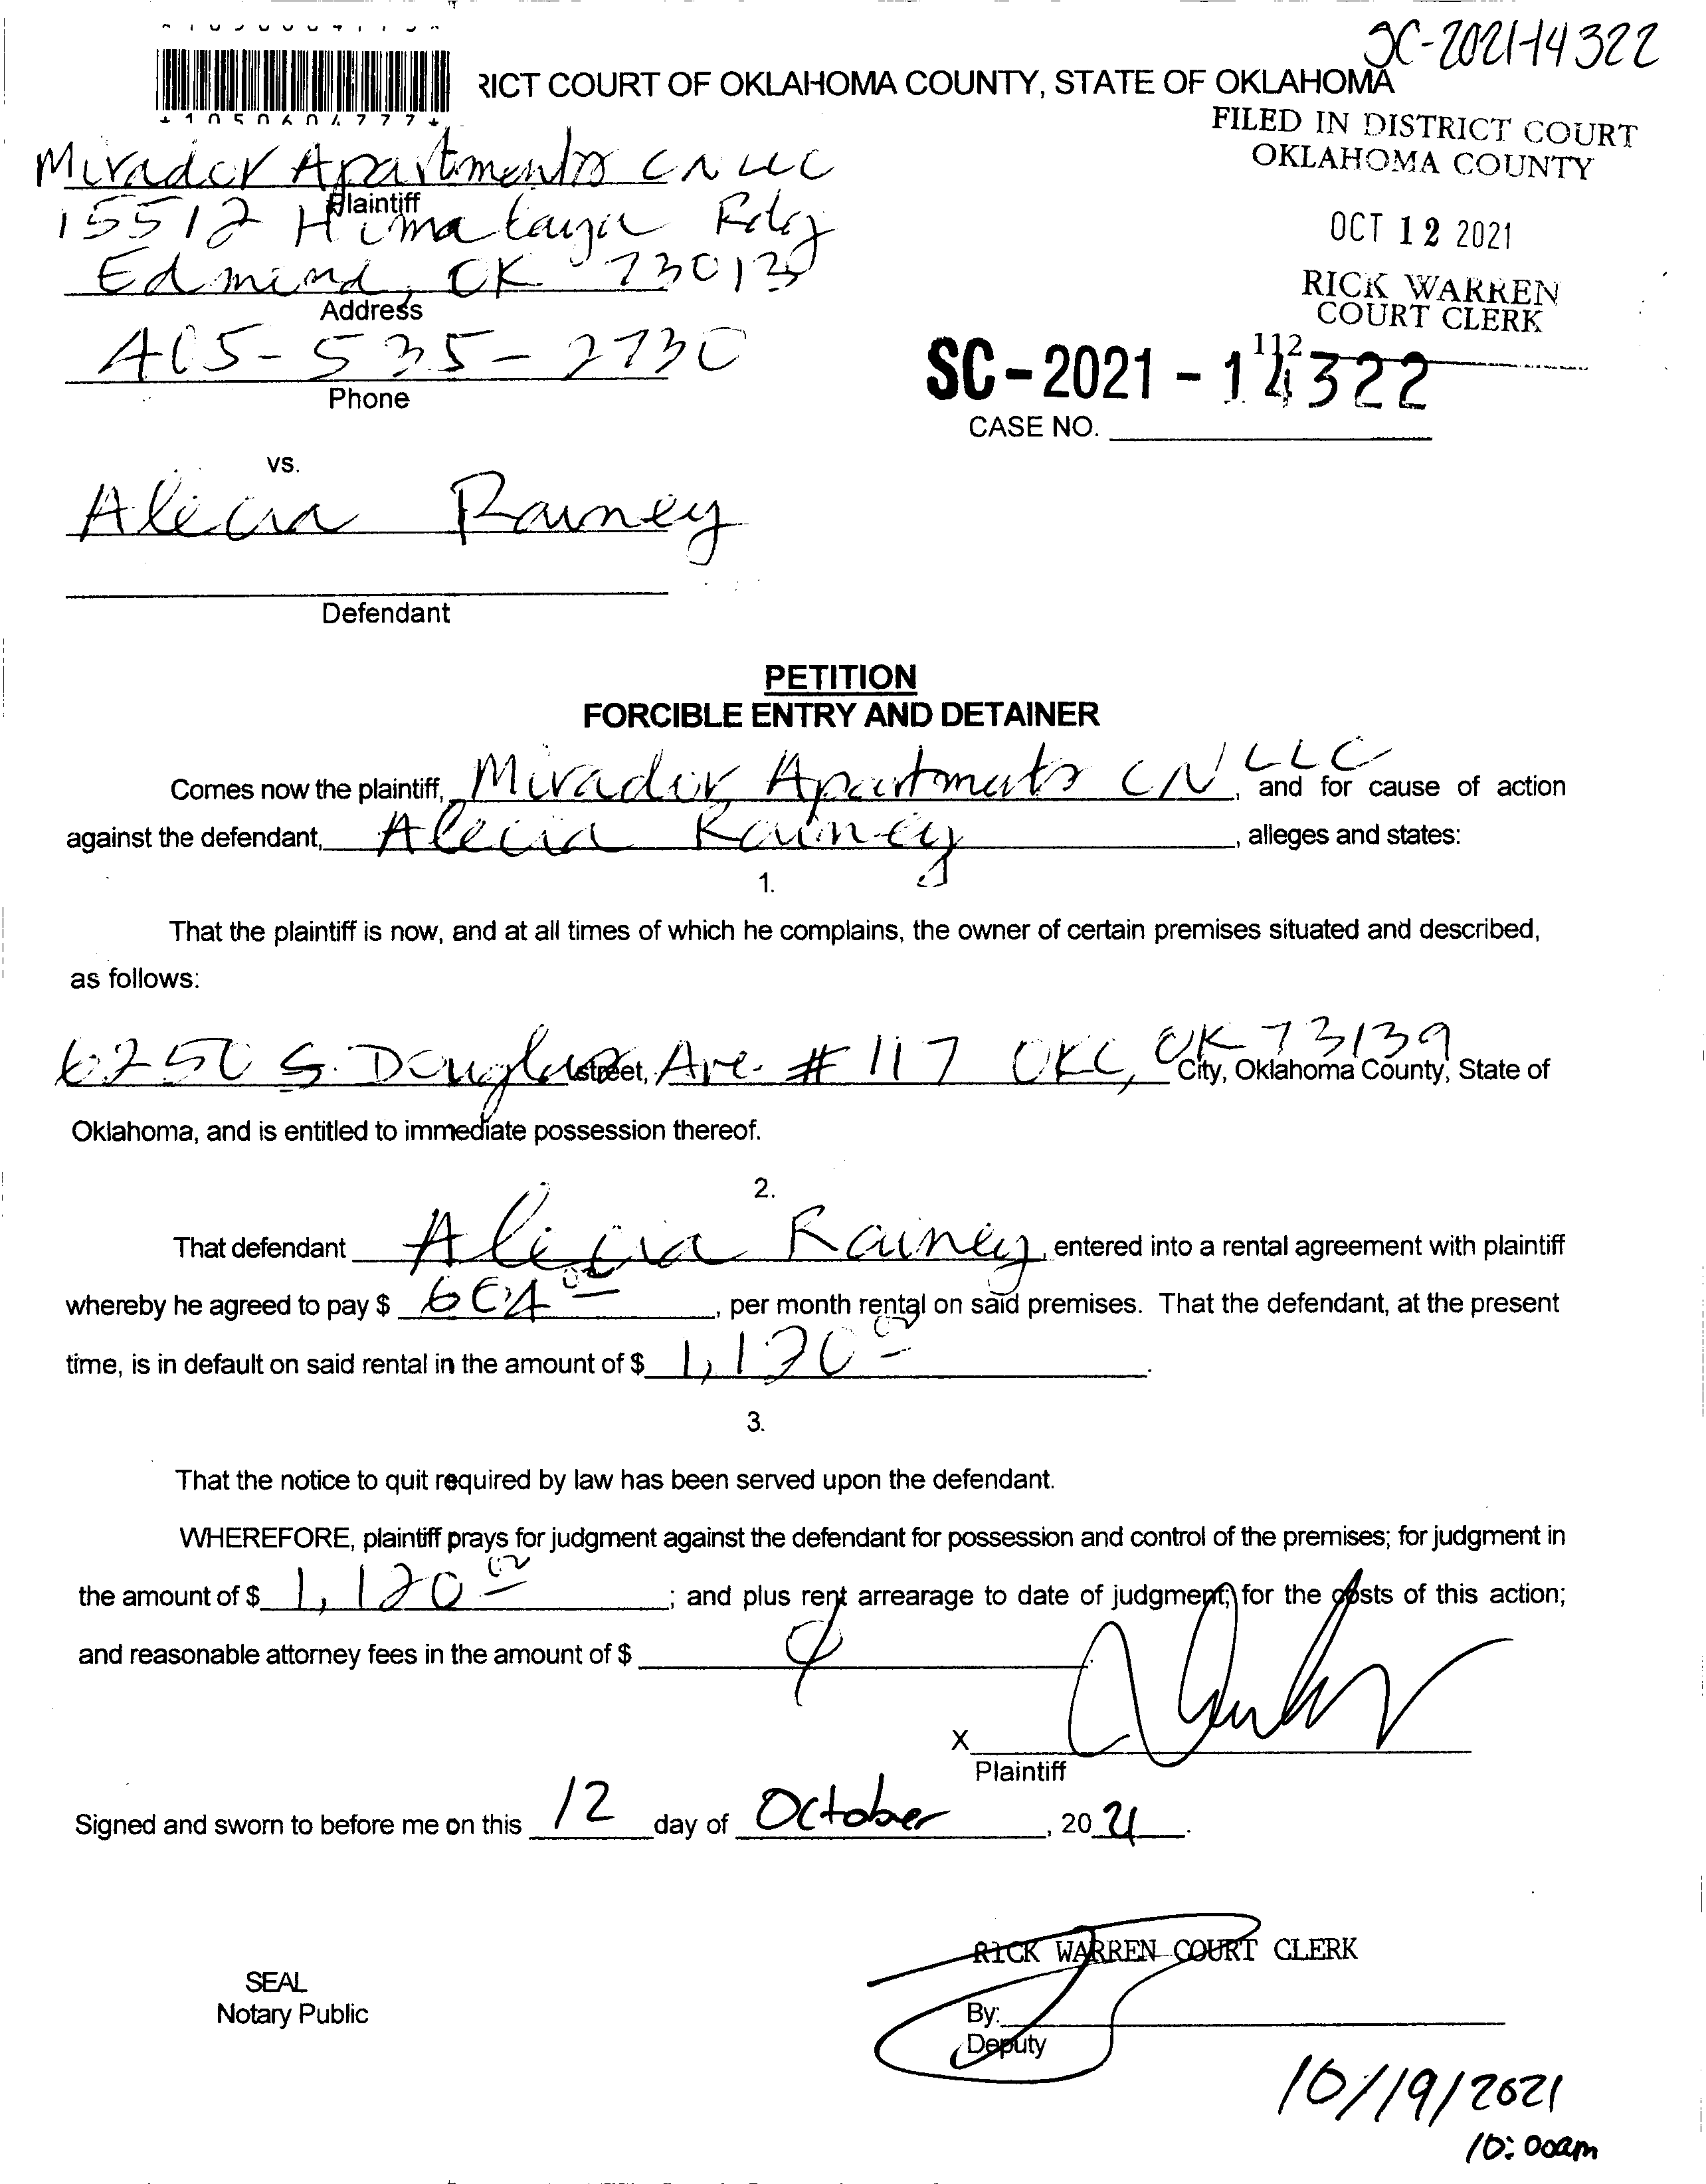 SC-2021-14322
RICT COURT OF OKLAHOMA COUNTY, STATE OF OKLAHOMA
*1050604777*
FILED IN DISTRICT COURT
OKLAHOMA COUNTY
Mirador Apartments CN LLC
Plaintiff
15512 Himalaya Rdg
OCT 12 2021
Edmond, OK 73013
Address
RICK WARREN
COURT CLERK
405-535-2730
Phone
112
SC-2021-14322
CASE NO.
vs.
Alecia Rainey
Defendant
PETITION
FORCIBLE ENTRY AND DETAINER
Comes now the plaintiff, Mirador Apartments CN LLC, and for cause of action
against the defendant, Alecia Rainey, alleges and states:
1.
That the plaintiff is now, and at all times of which he complains, the owner of certain premises situated and described,
as follows:
6250 S. Douglas street, Ave. #117 OKC, OK 73139 City, Oklahoma County, State of
Oklahoma, and is entitled to immediate possession thereof.
2.
That defendant Alecia Rainey, entered into a rental agreement with plaintiff
whereby he agreed to pay $ 604 00, per month rental on said premises. That the defendant, at the present
time, is in default on said rental in the amount of $ 1,120 00.
3.
That the notice to quit required by law has been served upon the defendant.
WHEREFORE, plaintiff prays for judgment against the defendant for possession and control of the premises; for judgment in
the amount of $ 1,120 00; and plus rent arrearage to date of judgment; for the costs of this action;
and reasonable attorney fees in the amount of $
X
Plaintiff
Signed and sworn to before me on this 12 day of October, 2021.
RICK WARREN COURT CLERK
SEAL
Notary Public
By:
Deputy
10/19/2021
10:00am